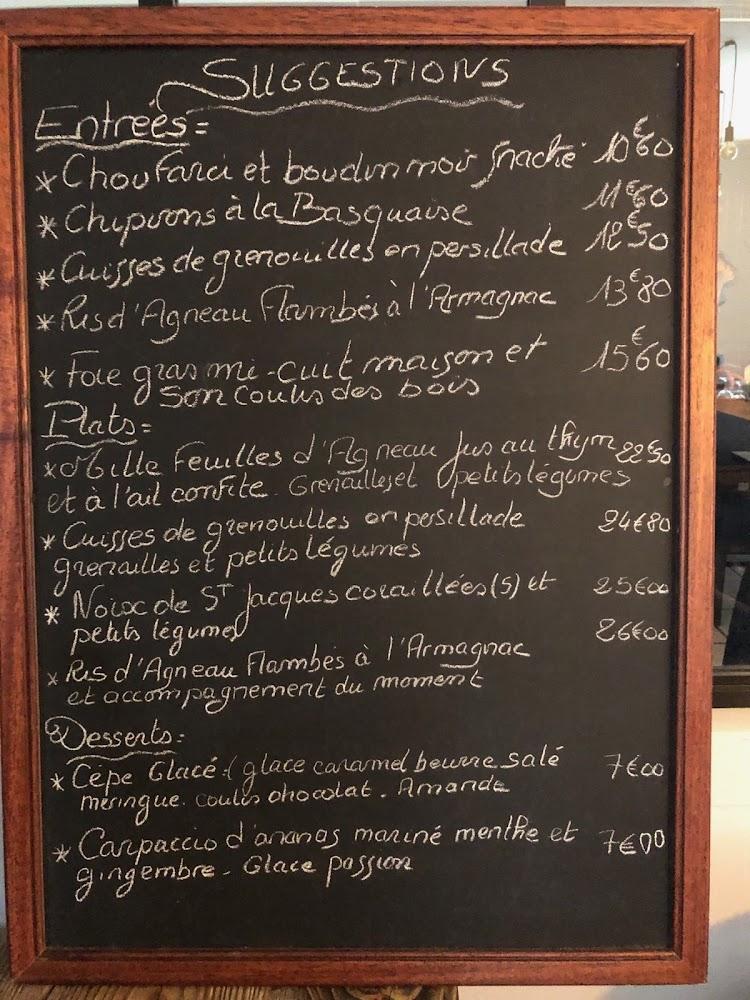 SUGGESTIONS
Entrées =
* Chou Farci et boudin noir snacké 10€60
* Chipirons à la Basquaise 11€60
* Cuisses de grenouilles en persillade 12€50
* Ris d'Agneau Flambés à l'Armagnac 13€80
* Foie gras mi-cuit maison et 15€60
son coulis des bois
Plats =
* Mille Feuilles d'Agneau Jus au thym 22€50
et à l'ail confite. Grenailles et petits légumes
* Cuisses de grenouilles en persillade 24€80
grenailles et petits légumes
* Noix de ST Jacques coraillées (5) et 25€00
petits légumes
* Ris d'Agneau Flambés à l'Armagnac 26€00
et accompagnement du moment
Desserts =
* Cèpe Glacé : ( glace caramel beurre salé 7€00
meringue. coulis chocolat. Amande
* Carpaccio d'ananas mariné menthe et 7€00
gingembre - Glace passion